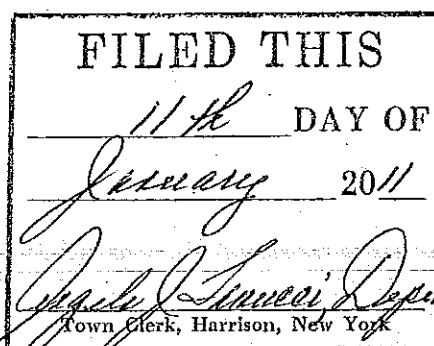 FILED THIS
11th DAY OF
January 2011
Angelo J.
Town Clerk, Harrison, New York